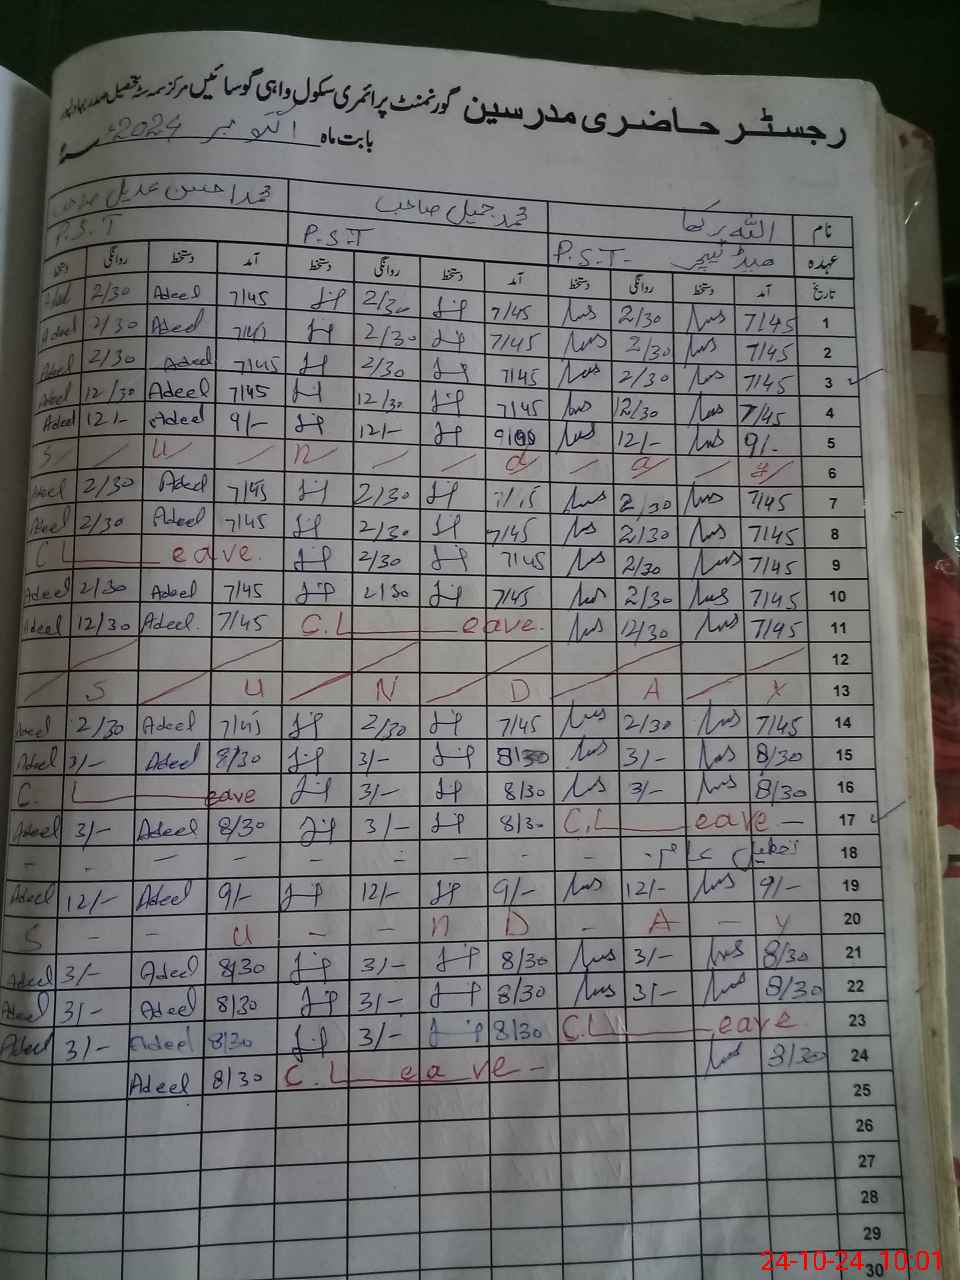 رجسٹر حاضری مدرسین گورنمنٹ پرائمری سکول واہی گوسائیں مرکز سمہ سٹہ تحصیل صدر بہاولپور
بابت ماہ اکتوبر 2024ء
نام اللہ رکھا محمد جمیل صاحب محمد احسن عدیل صاحب
عہدہ ہیڈ ٹیچر P.S.T- P.S.T P.S.T
تاریخ آمد دستخط روانگی دستخط آمد دستخط روانگی دستخط آمد دستخط روانگی دستخط
1 7/45 2/30 7/45 2/30 7/45 Adeel 2/30 Adeel
2 7/45 2/30 7/45 2/30 7/45 Adeel 2/30 Adeel
3 7/45 2/30 7/45 2/30 7/45 Adeel 2/30 Adeel
4 7/45 12/30 7/45 12/30 7/45 Adeel 12/30 Adeel
5 9/- 12/- 12/- 9/- Adeel 12/- Adeel
6 S u n d a y
7 7/45 2/30 2/30 7/45 Adeel 2/30 Adeel
8 7/45 2/30 7/45 2/30 7/45 Adeel 2/30 Adeel
9 7/45 2/30 7/45 2/30 C Leave.
10 7/45 2/30 7/45 2/30 7/45 Adeel 2/30 Adeel
11 7/45 12/30 C.Leave. 7/45 Adeel. 12/30 Adeel
12
13 S U N D A Y
14 7/45 2/30 7/45 2/30 7/45 Adeel 2/30 Adeel
15 8/30 3/- 8/30 3/- 8/30 Adeel 3/- Adeel
16 8/30 3/- 8/30 3/- C. Leave
17 C.Leave - 8/30 3/- 8/30 Adeel 3/- Adeel
18 تعطیل عام - - - - - - - - -
19 9/- 12/- 9/- 12/- 9/- Adeel 12/- Adeel
20 S - - u - - n D - A - y
21 8/30 3/- 8/30 3/- 8/30 Adeel 3/- Adeel
22 8/30 3/- 8/30 3/- 8/30 Adeel 3/- Adeel
23 C.Leave 8/30 3/- 8/30 Adeel 3/- Adeel
24 8/30 C.Leave - 8/30 Adeel
25
26
27
28
29
30
24-10-24, 10:01